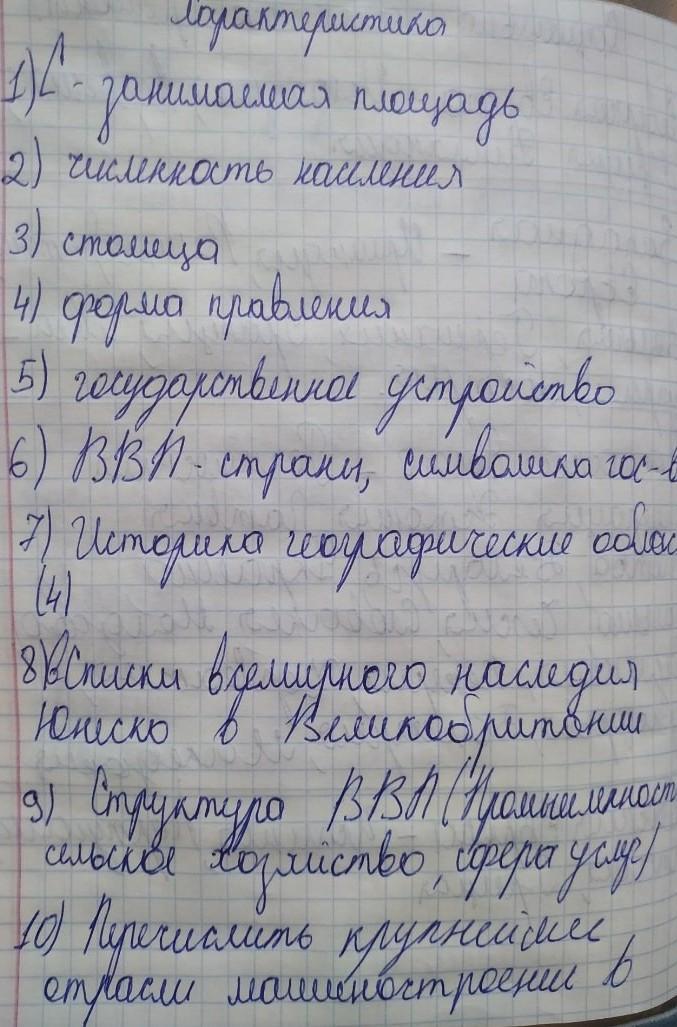 Характеристика
1) S - занимаемая площадь
2) численность населения
3) столица
4) форма правления
5) государственное устройство
6) ВВП - страны, символика гос-в
7) Историко географические облас
(4)
8) В Списки всемирного наследия
Юнеско в Великобритании
9) Структура ВВП (Промышленност
сельское хозяйство, сфера услуг)
10) Перечислить крупнейшие
отрасли машиностроении в